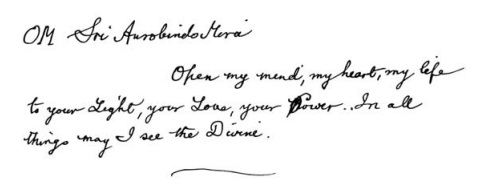 OM Sri AurobindoMira
Open my mind, my heart, my life
to your Light, your Love, your Power.. In all
things may I see the Divine.